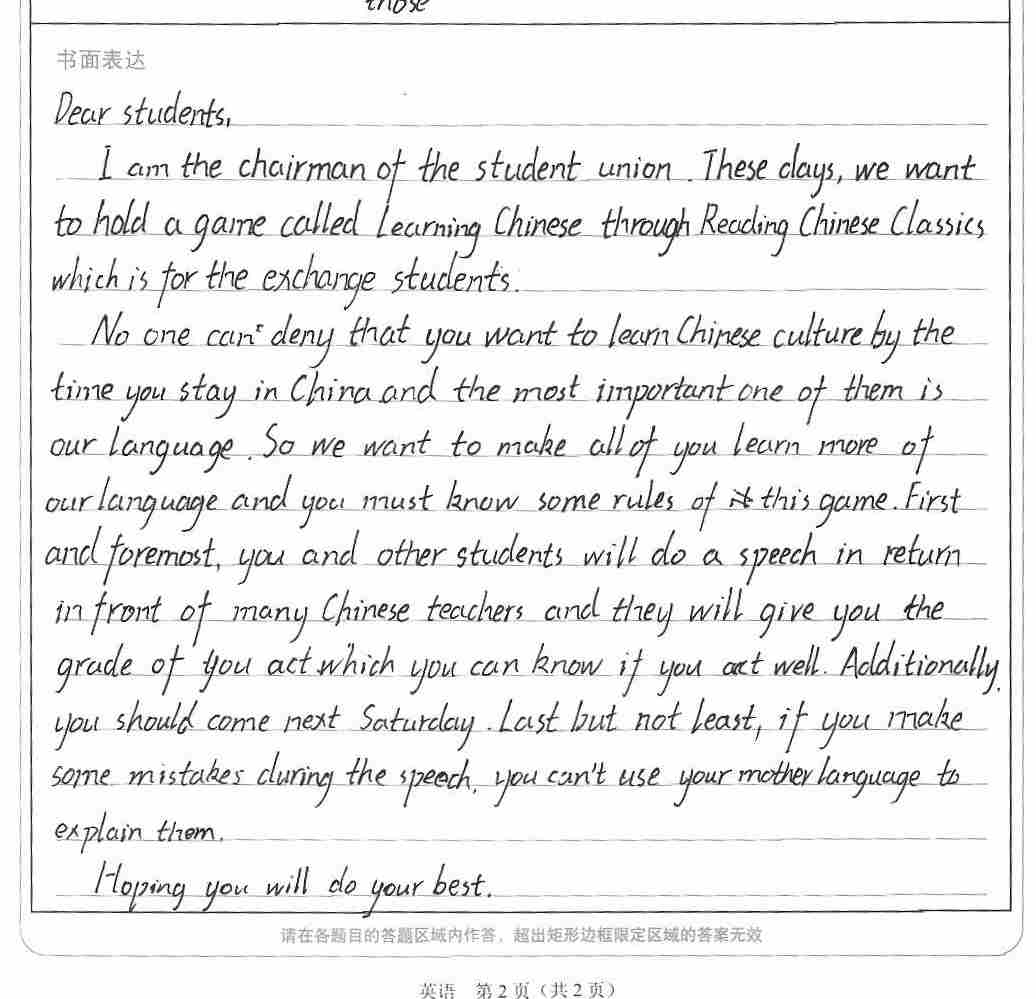 those
书面表达
Dear students,
I am the chairman of the student union. These days, we want
to hold a game called Learning Chinese through Reading Chinese Classics
which is for the exchange students.
No one can't deny that you want to learn Chinese culture by the
time you stay in China and the most important one of them is
our language. So we want to make all of you learn more of
our language and you must know some rules of this game. First
and foremost, you and other students will do a speech in return
in front of many Chinese teachers and they will give you the
grade of you act which you can know if you act well. Additionally,
you should come next Saturday. Last but not least, if you make
some mistakes during the speech, you can't use your mother language to
explain them.
Hoping you will do your best.
请在各题目的答题区域内作答，超出矩形边框限定区域的答案无效
英语 第2页（共2页）